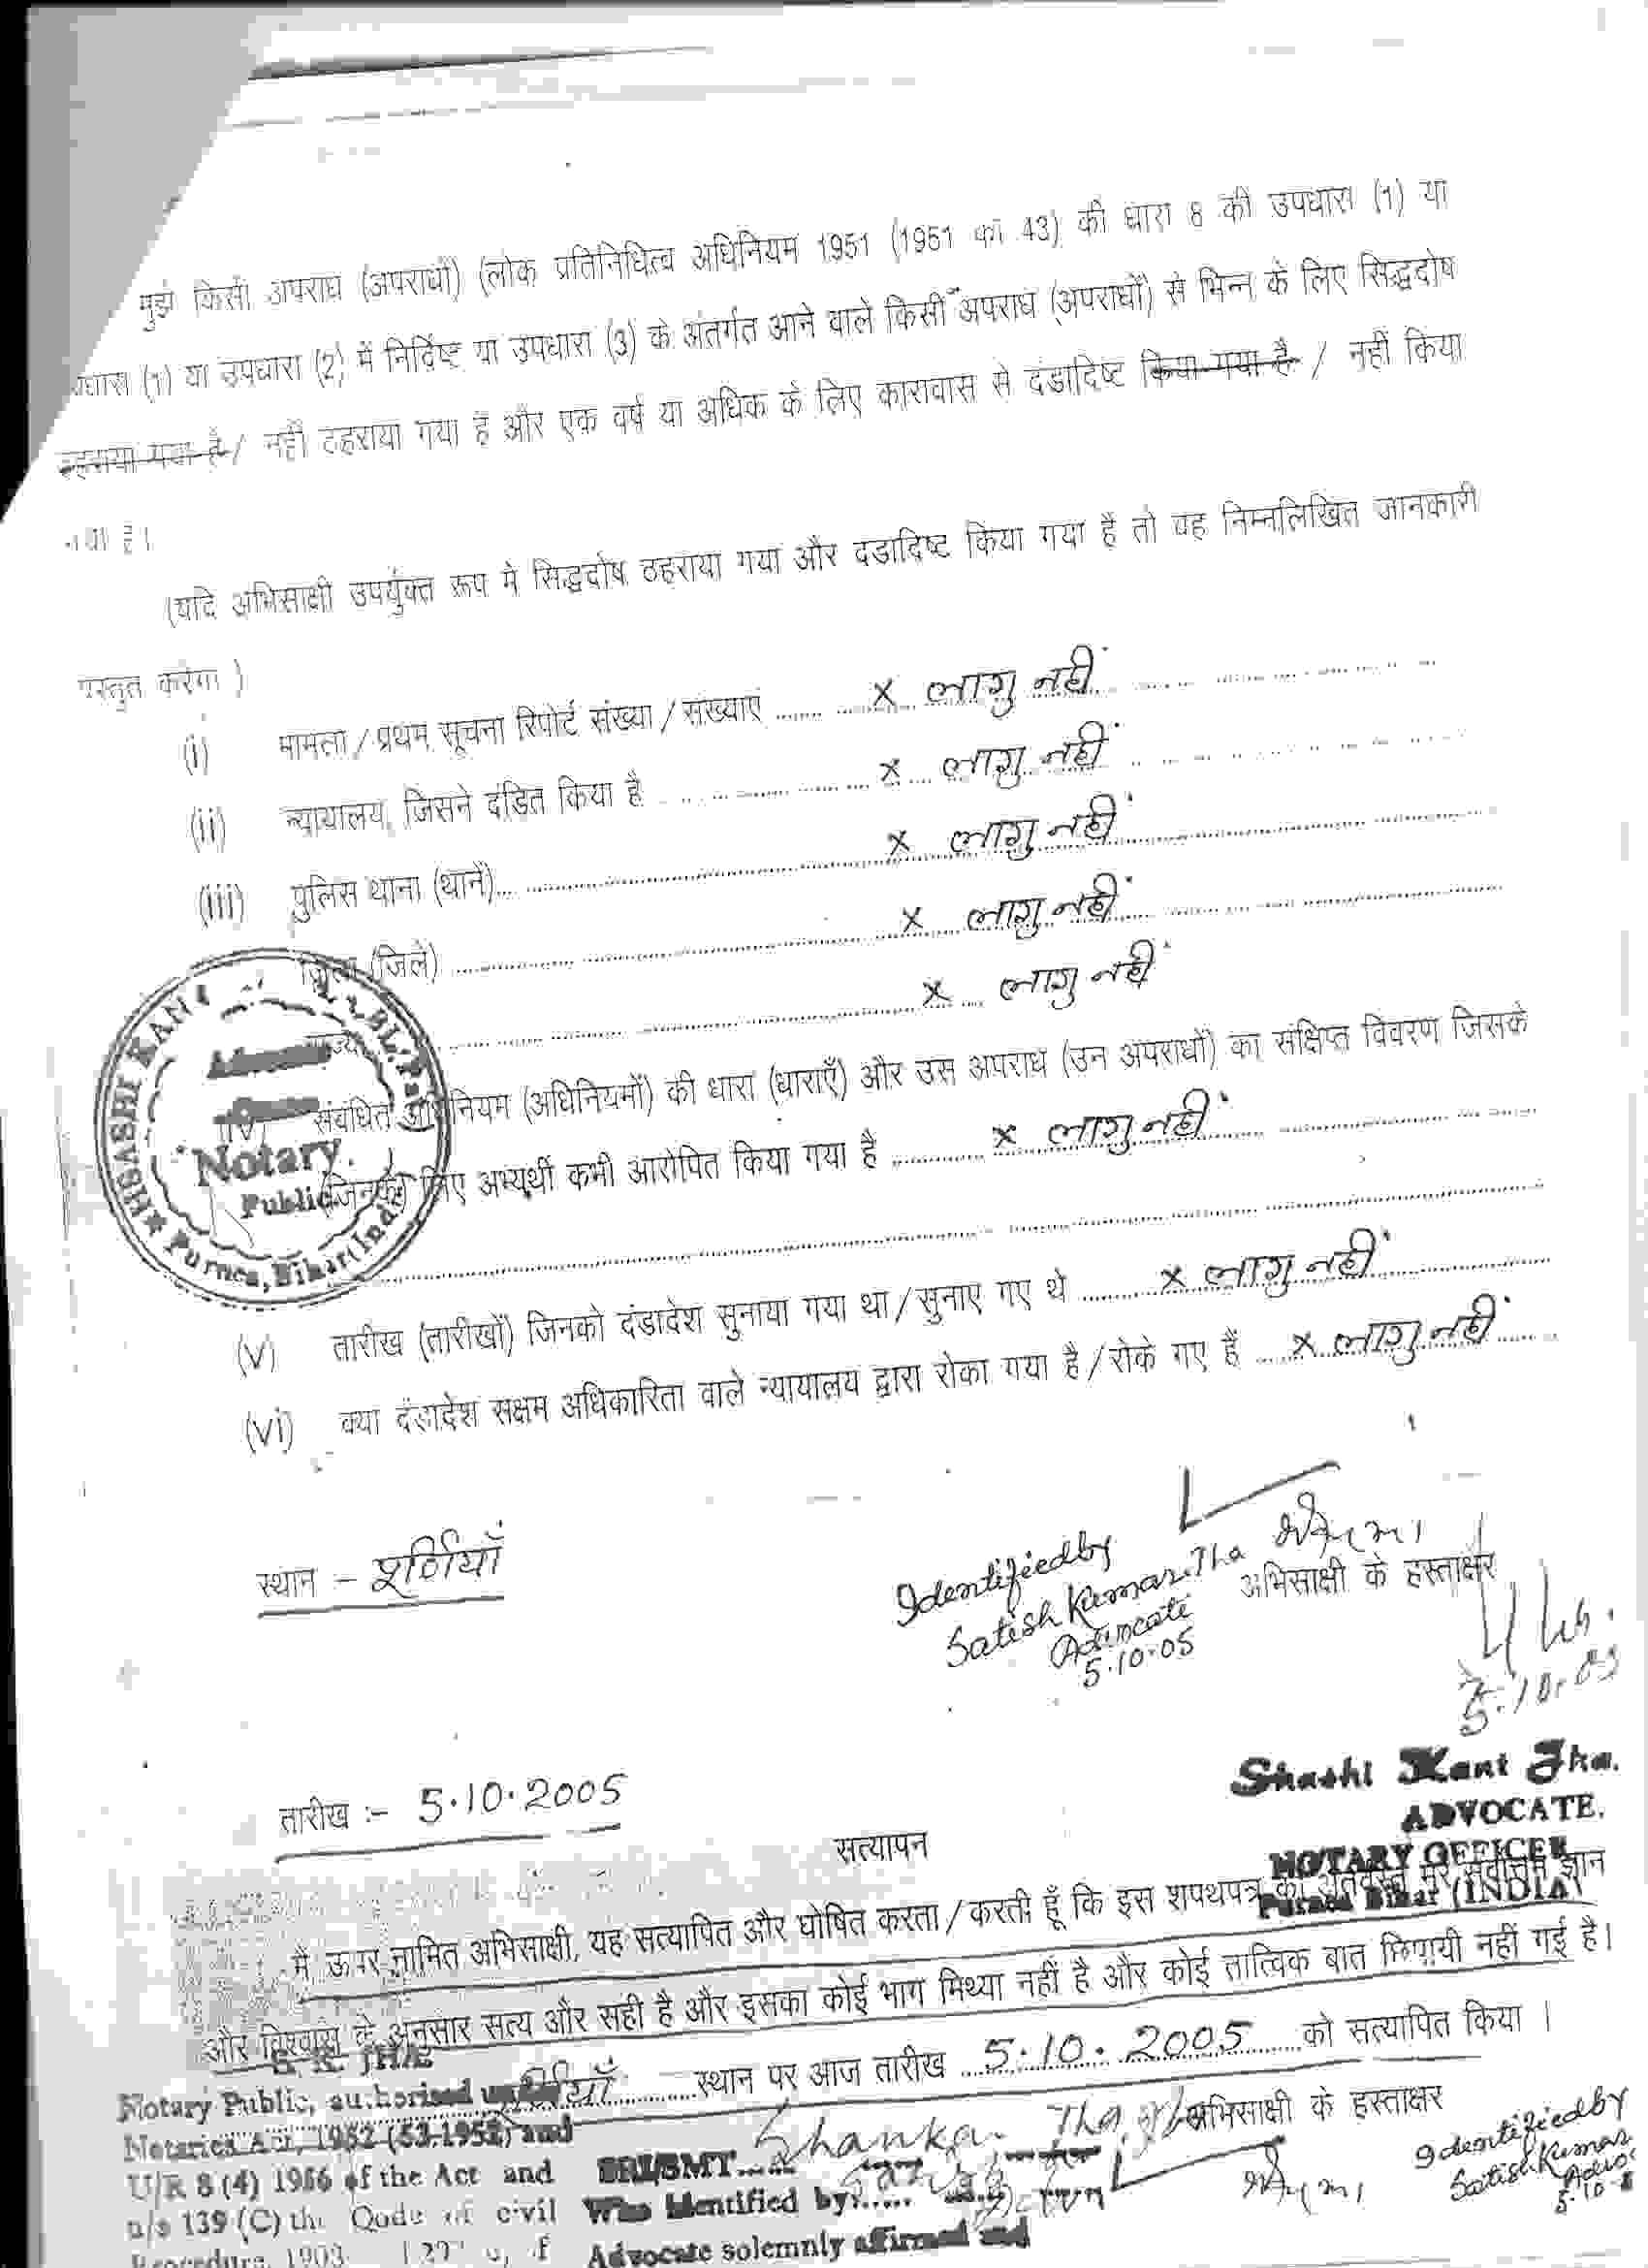 मुझे किसी अपराध (अपराधों) (लोक प्रतिनिधित्व अधिनियम 1951 (1951 का 43) की धारा 8 की उपधारा (1) या
(1) या उपधारा (2) में निर्दिष्ट या उपधारा (3) के अंतर्गत आने वाले किसी अपराध (अपराधों) से भिन्न के लिए सिद्धदोष
ठहराया गया है / नहीं ठहराया गया है और एक वर्ष या अधिक के लिए कारावास से दंडादिष्ट किया गया है / नहीं किया
गया है।
(यदि अभिसाक्षी उपर्युक्त रूप में सिद्धदोष ठहराया गया और दंडादिष्ट किया गया है तो वह निम्नलिखित जानकारी
प्रस्तुत करेगा )
(i) मामला / प्रथम सूचना रिपोर्ट संख्या / संख्याएं ........ x लागु नहीं
(ii) न्यायालय, जिसने दंडित किया है ........ x लागु नहीं
(iii) पुलिस थाना (थाने) ........ x लागु नहीं
जिला (जिले) ........ x लागु नहीं
राज्य ........ x लागु नहीं
(iv) संबंधित अधिनियम (अधिनियमों) की धारा (धाराएँ) और उस अपराध (उन अपराधों) का संक्षिप्त विवरण जिसके
(जिनके) लिए अभ्यर्थी कभी आरोपित किया गया है ........ x लागु नहीं
(v) तारीख (तारीखों) जिनको दंडादेश सुनाया गया था / सुनाए गए थे ........ x लागु नहीं
(vi) क्या दंडादेश सक्षम अधिकारिता वाले न्यायालय द्वारा रोका गया है / रोके गए हैं ........ x लागु नहीं
SHASHI KANT BL. Pat
Notary
Public
Purnea, Bihar (India
स्थान :- पूर्णियाँ
Identified by
Satish Kumar Jha
Advocate
5.10.05
अभिसाक्षी के हस्ताक्षर
5.10.05
Shashi Kant Jha.
ADVOCATE.
NOTARY OFFICER
Purnea Bihar (INDIA)
तारीख :- 5.10.2005
सत्यापन
मैं ऊपर नामित अभिसाक्षी, यह सत्यापित और घोषित करता / करती हूँ कि इस शपथपत्र की अंतर्वस्तु मेरे सर्वोत्तम ज्ञान
और विश्वास के अनुसार सत्य और सही है और इसका कोई भाग मिथ्या नहीं है और कोई तात्विक बात छिपायी नहीं गई है।
पूर्णियाँ ........ स्थान पर आज तारीख 5.10.2005 को सत्यापित किया ।
अभिसाक्षी के हस्ताक्षर
S. K. JHA
Notary Public, authorised under
Notaries Act, 1952 (53-1952) and
U/R 8 (4) 1956 of the Act and
u/s 139 (C) the Code of civil
Procedure, 1908
SRI/SMT..... Shankar Jha
Who Identified by:......
Advocate solemnly affirmed and
Identified by
Satish Kumar
Advo
5-10